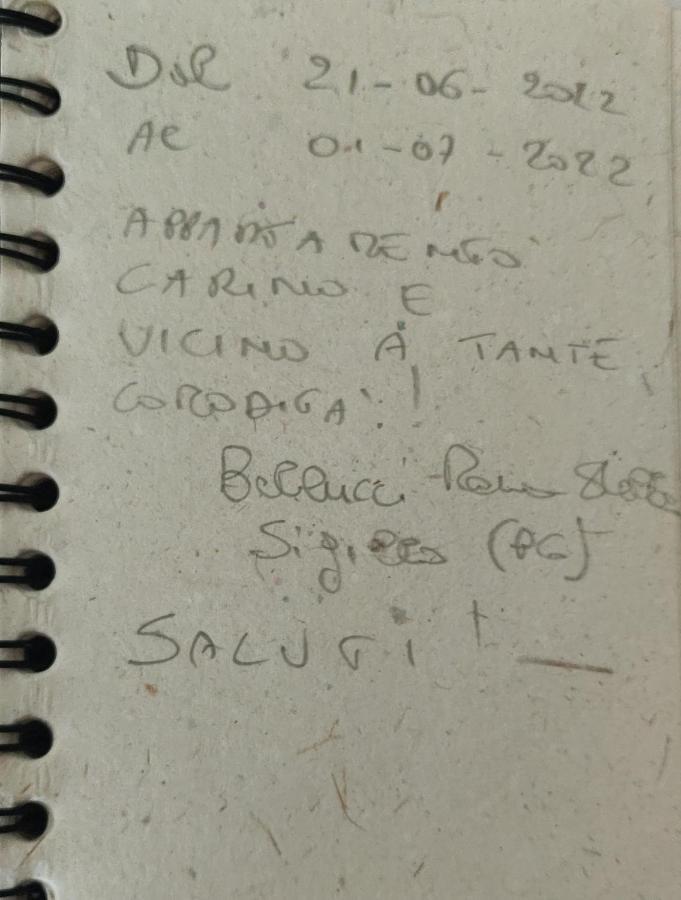 Dal 21-06-2022
Al 01-07-2022
APPARTAMENTO
CARINO E
VICINO A TANTE
COMODITA'!
Bellucci
Sigillo (PG)
SALUTI!